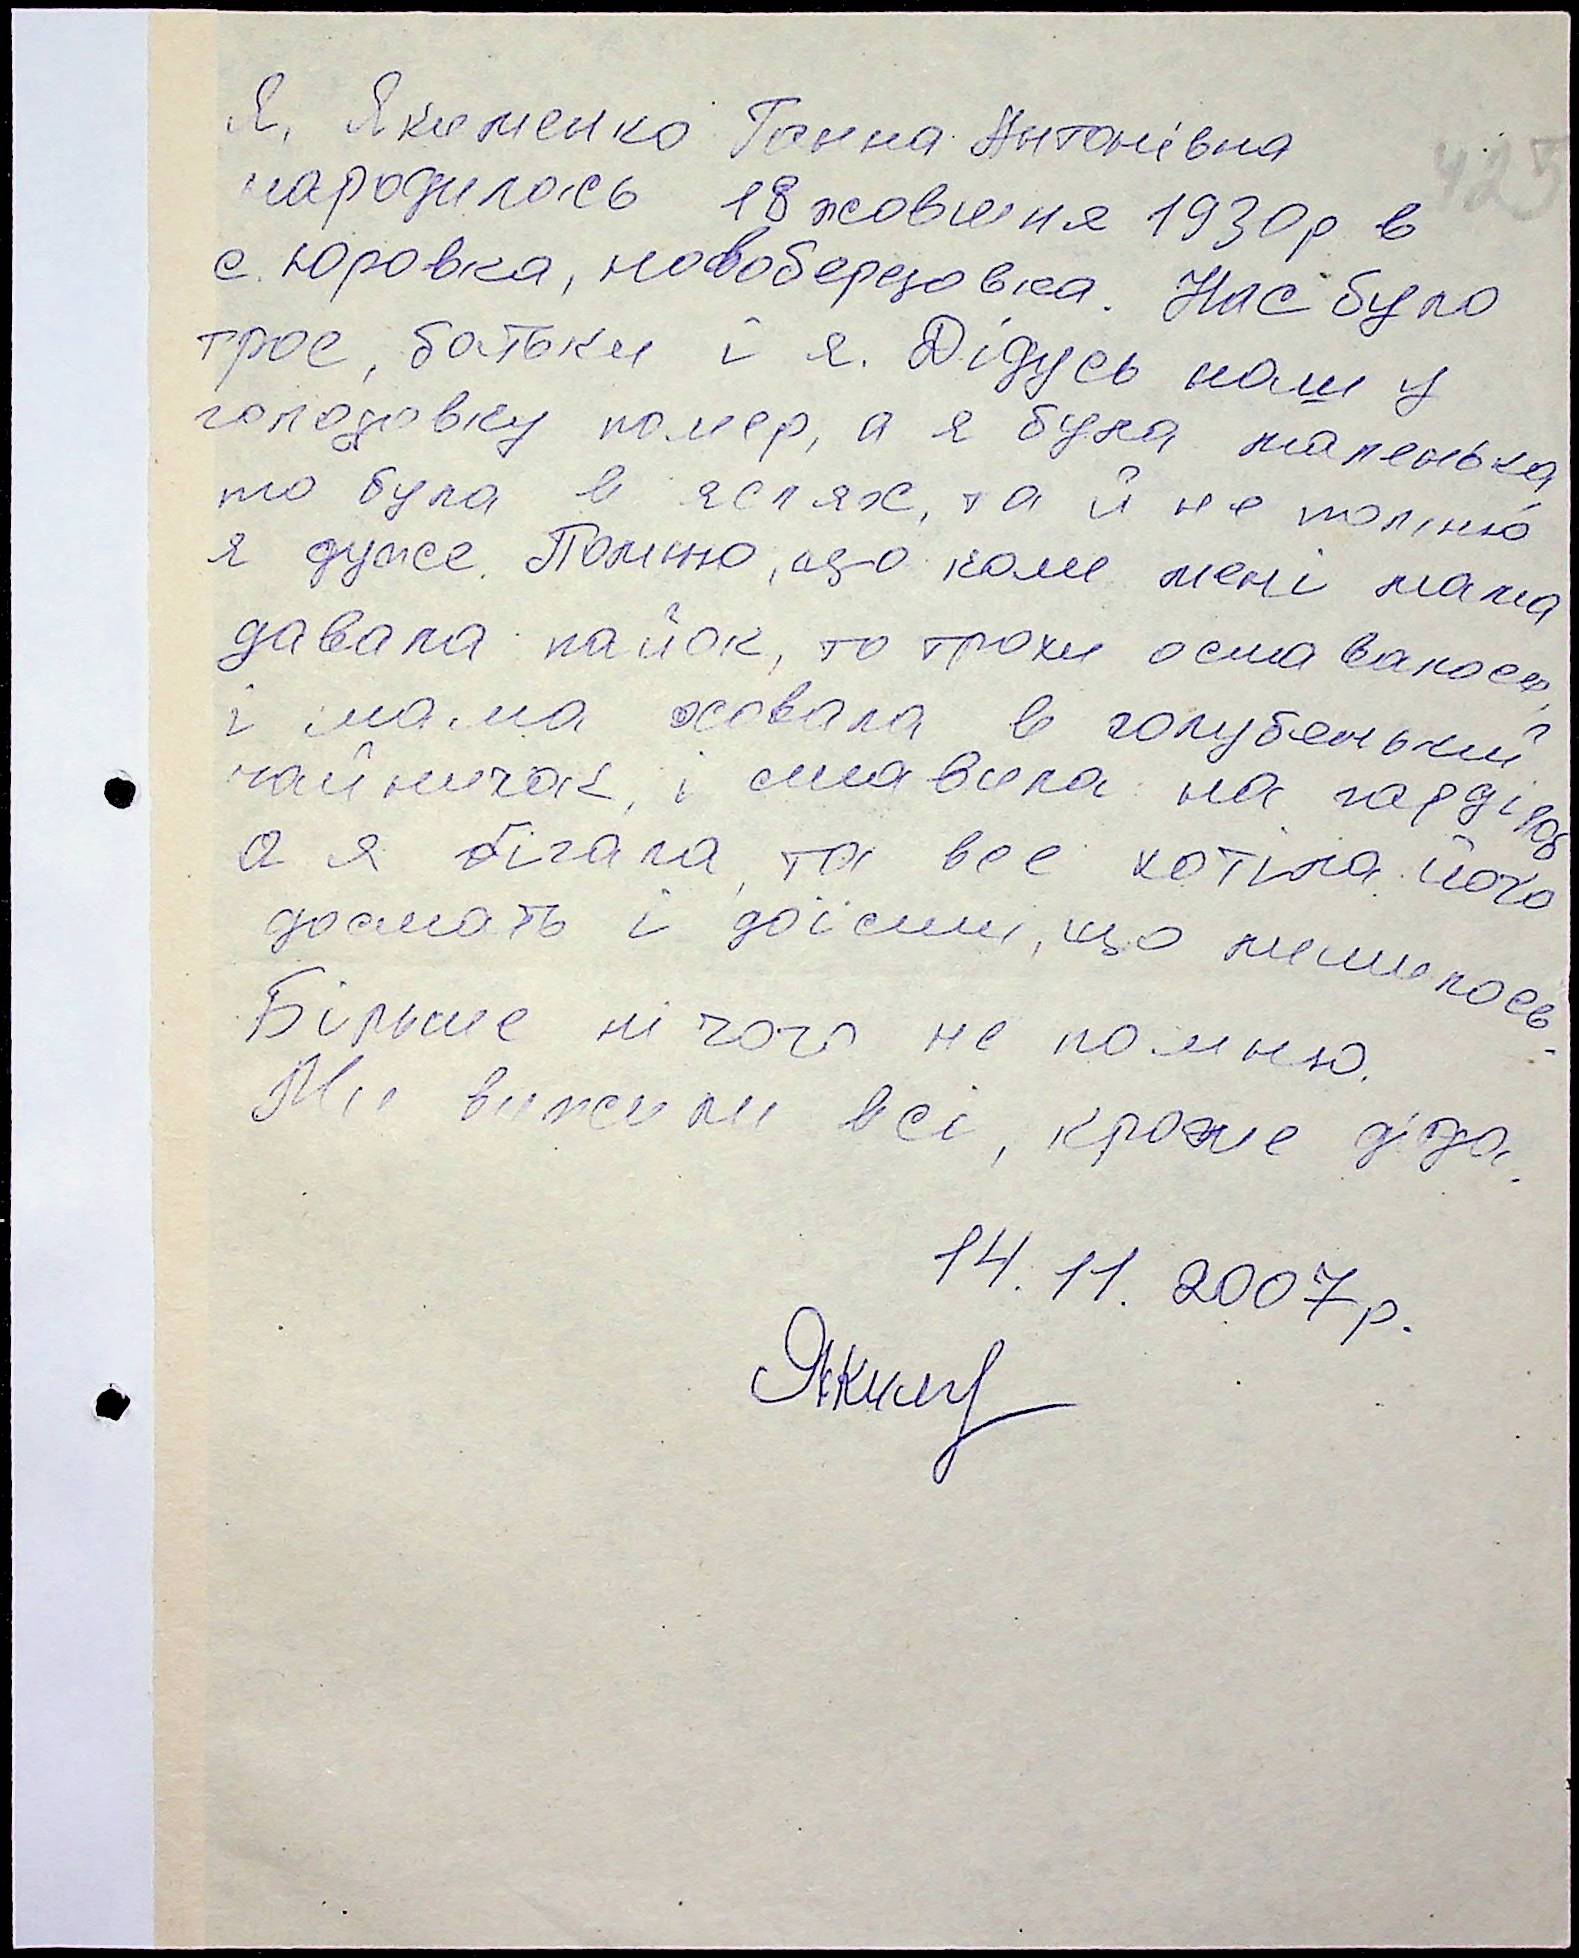 425
Я, Якименко Ганна Антонівна
народилась 18 жовтня 1930р в
с. Юровка, новоберезовка. Нас було
троє, батьки і я. Дідусь наш у
голодовку помер, а я була маленька,
то була в яслях, та й не помню
я дуже. Помню, що коли мені мама
давала пайок, то трохи оставалось,
і мама ховала в голубенький
чайничок, і ставила на гардіроб
а я бігала, та все хотіла його
достать і доїсти, що лишилось.
Більше нічого не помню.
Ми вижили всі, кроме діда.
14.11.2007р.